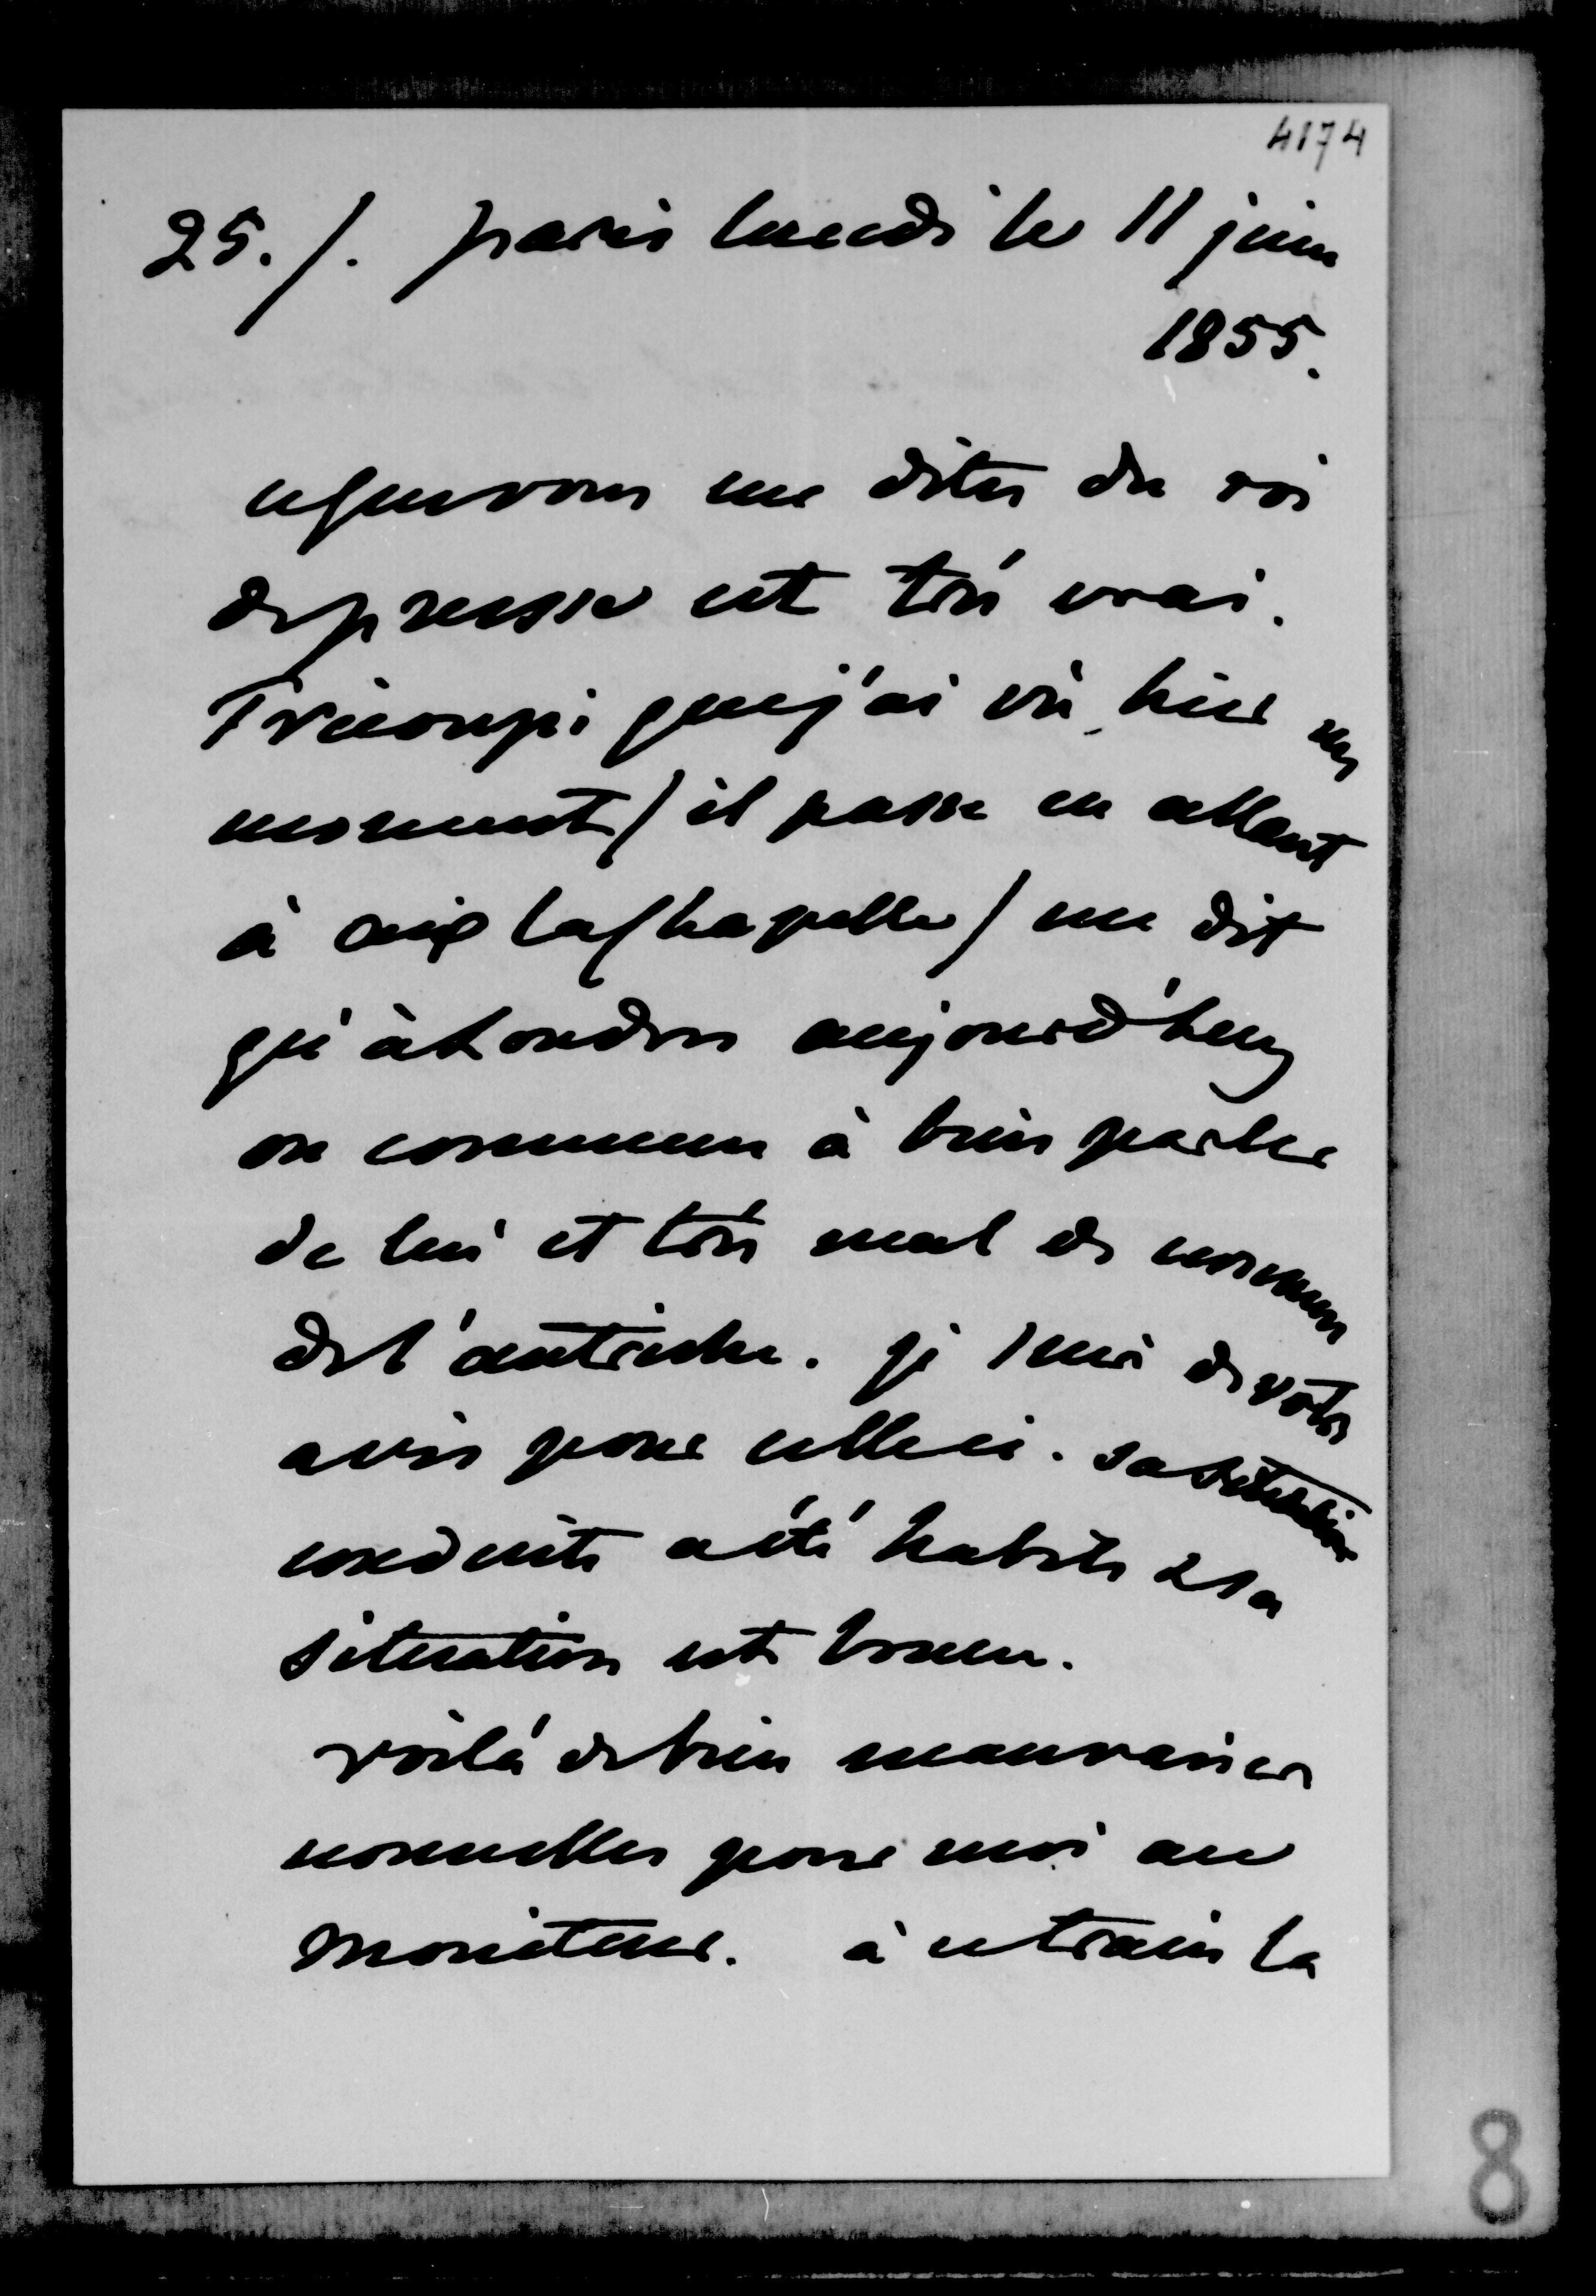 4174
25./. paris lundi le 11 juin
1855.
ce que vous me dites du roi
de prusse est très vrai.
Tricoupi que j'ai vu hier un
moment / il passe en allant
à aix la chapelle / me dit
qu'à Londres aujourd'huy
on commence à bien parler
de lui et très mal de nouveau
de l'autriche. je suis de votre
avis pour celle ci. sa
conduite a été habile & sa
situation est bonne.
voilà de bien mauvaises
nouvelles pour moi au
moniteur. à ce train la
8